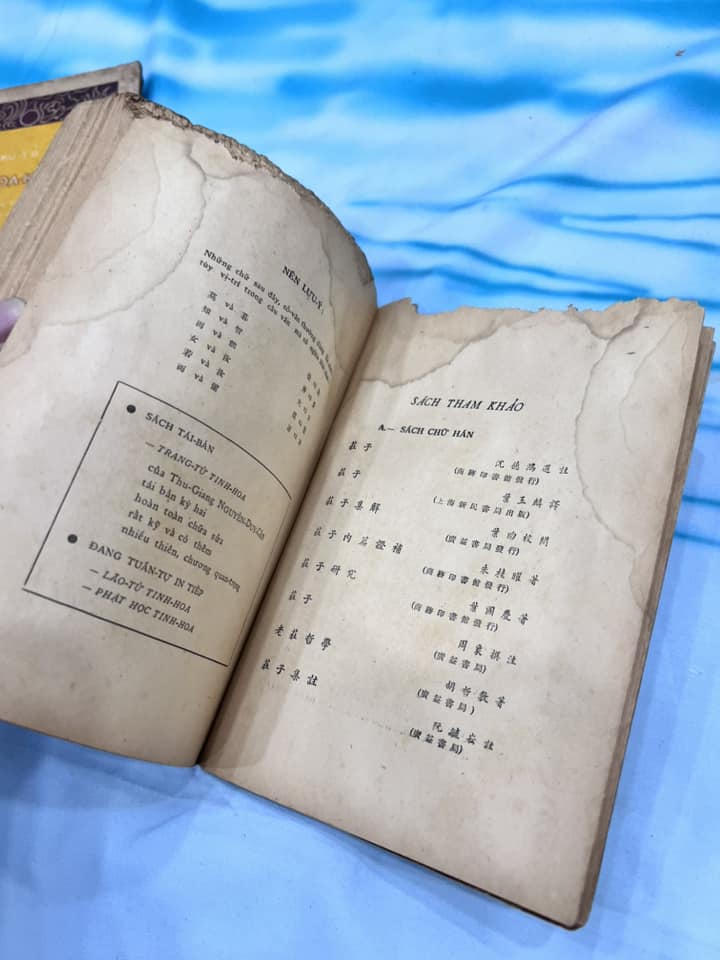 NÊN LƯU-Ý:
Những chữ sau đây, cổ-văn thường dùng
tùy vị-trí trong câu văn mà có nghĩa
và
và 智
而 và
女 và 汝
若 và 汝
而 và
● SÁCH TÁI-BẢN
— TRANG-TỬ TINH-HOA
của Thu-Giang NGUYỄN-DUY-CẦN
tái bản kỳ hai
hoàn toàn chữa sửa
rất kỹ và có thêm
nhiều thiên, chương quan-trọng
● ĐANG TUẦN-TỰ IN TIẾP
— LÃO-TỬ TINH-HOA
— PHẬT HỌC TINH-HOA
SÁCH THAM KHẢO
A.— SÁCH CHỮ HÁN
莊子 沈德鴻選註
(商務印書館發行)
莊子 葉玉麟譯
(上海新民書局出版)
莊子集解 葉昀校閱
(廣益書局發行)
莊子內篇證補 朱桂曜著
(商務印書館發行)
莊子研究 葉國慶著
(商務印書館發行)
莊子 周象撰注
(廣益書局)
老莊哲學 胡哲敷著
(廣益書局)
莊子集註 阮毓崧註
(廣益書局)